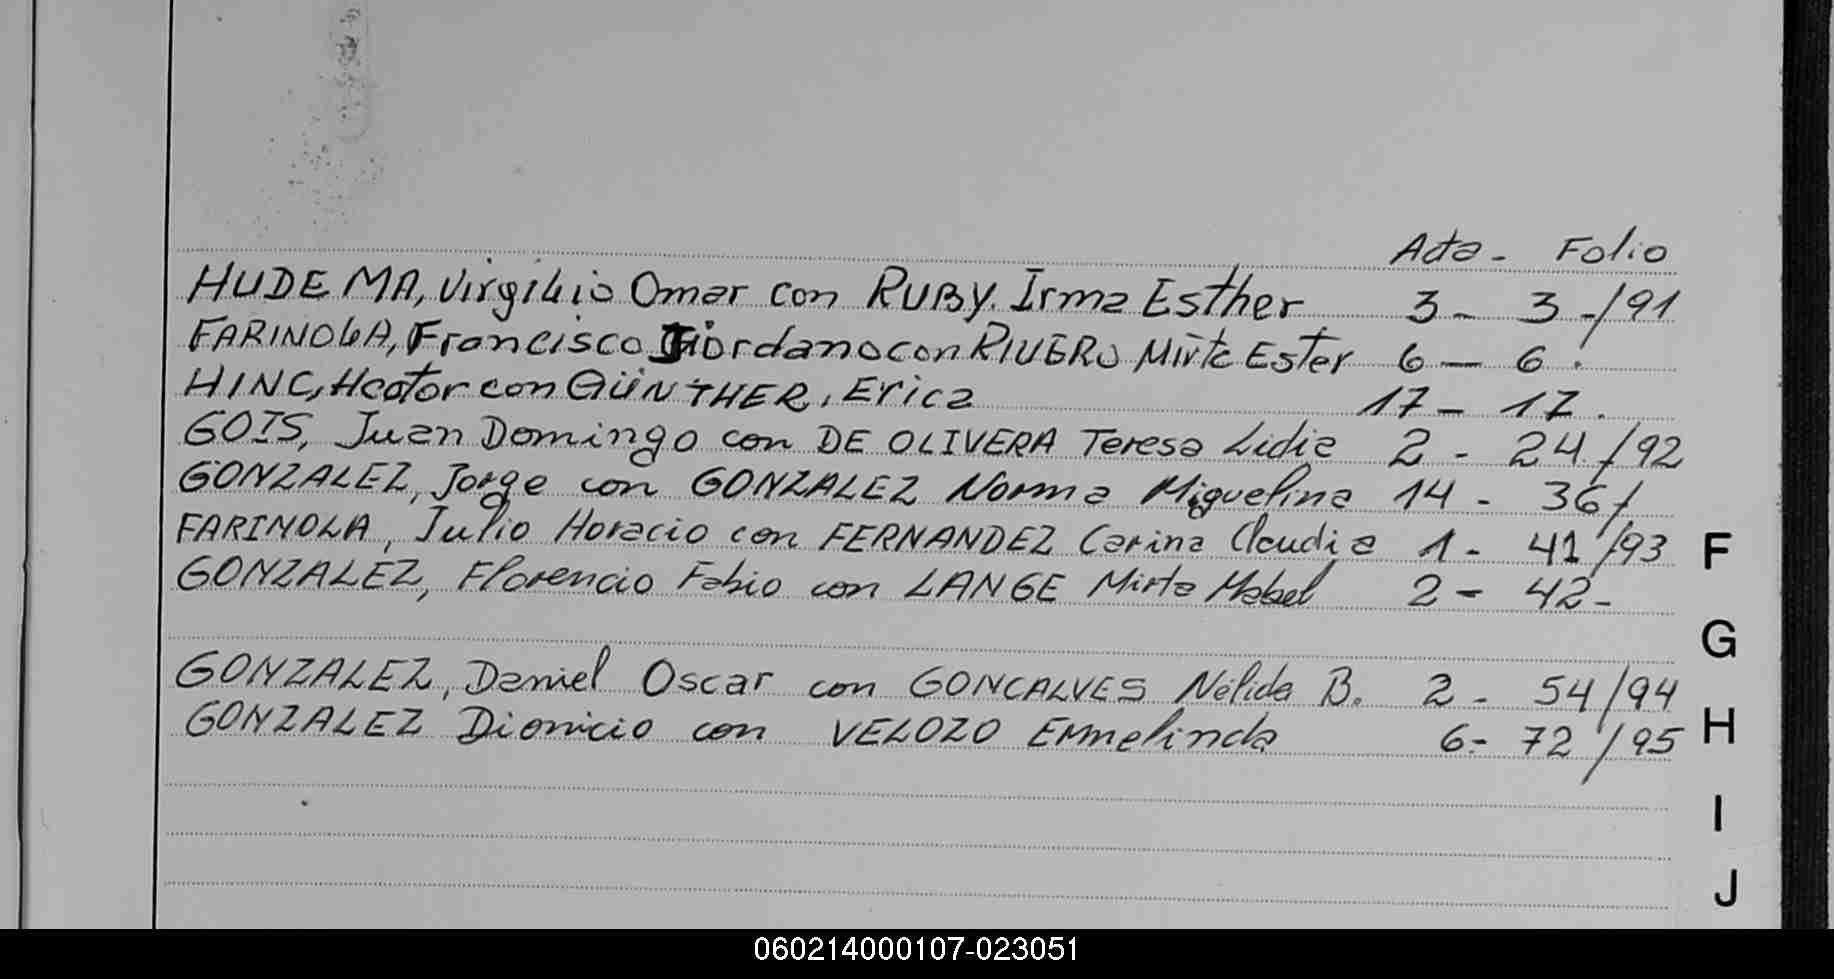 Acta - Folio
HUDEMA, Virgilio Omar con RUBY. Irma Esther 3 - 3 - /91
FARINOLA, Francisco Giordano con RIVERO Mirta Ester 6 - 6.
HINC, Hector con GÜNTHER, Erica 17 - 17.
GOIS, Juan Domingo con DE OLIVERA Teresa Lidia 2 - 24 /92
GONZALEZ, Jorge con GONZALEZ Norma Miguelina 14 - 36 /
FARINOLA, Julio Horacio con FERNANDEZ Carina Claudia 1 - 41 /93
F
GONZALEZ, Florencio Fabio con LANGE Mirta Mabel 2 - 42 -
G
GONZALEZ, Daniel Oscar con GONCALVES Nélida B. 2 - 54 /94
GONZALEZ Dionicio con VELOZO Ermelinda 6 - 72 /95
H
I
J
060214000107-023051